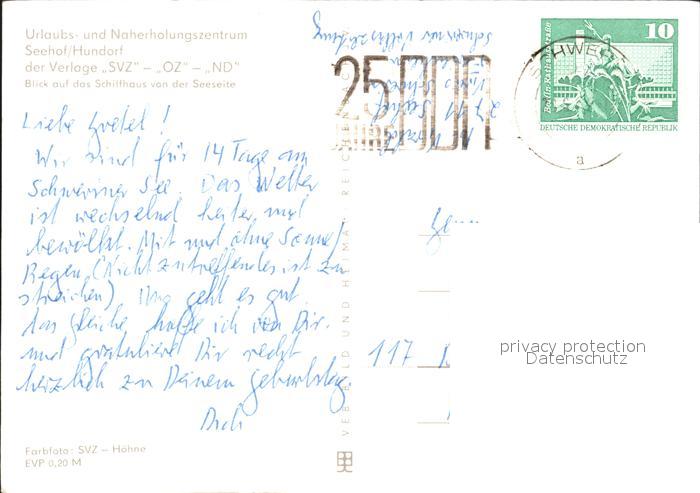 Urlaubs- und Naherholungszentrum
Seehof/Hundorf
der Verlage „SVZ" – „OZ" – „ND"
Blick auf das Schilfhaus von der Seeseite
Liebe Gretel!
Wir sind für 14 Tage am
Schweriner See. Das Wetter
ist wechselnd heiter und
bewölkt. Mit und ohne Sonne/
Regen. (Nicht zutreffendes ist zu
streichen). Uns geht es gut,
das gleiche hoffe ich von Dir.
und gratuliere Dir recht
herzlich zu Deinem Geburtstag.
Farbfoto: SVZ – Höhne
EVP 0,20 M
VEB BILD UND HEIMAT REICHENBACH
Schweriner Volkszeitung
2711 Seehof
25 JAHRE DDR
SCHWERIN
a
10
Berlin-Rathausstraße
DEUTSCHE DEMOKRATISCHE REPUBLIK
117
privacy protection
Datenschutz